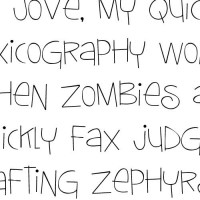 JOVE, MY QUIC
XICOGRAPHY WO
HEN ZOMBIES A
ICKLY FAX JUDG
AFTING ZEPHYRS